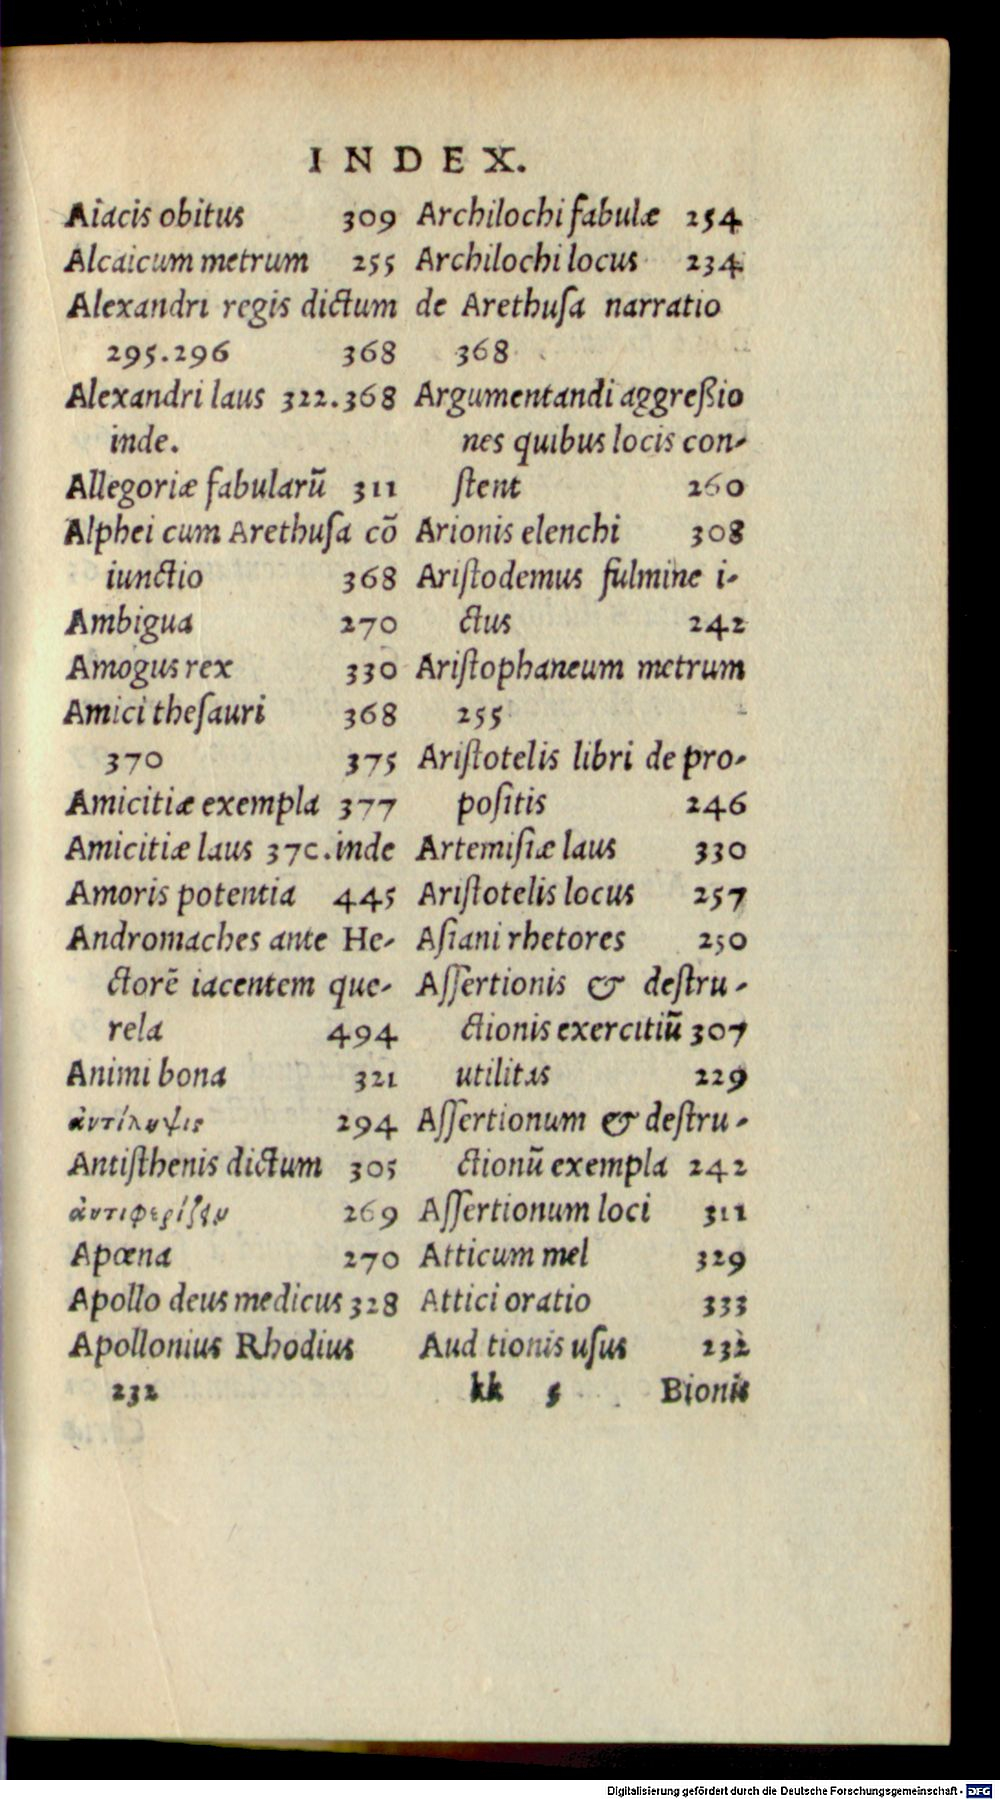 INDEX.
Aiacis obitus 309
Alcaicum metrum 255
Alexandri regis dictum
295.296 368
Alexandri laus 322.368
inde.
Allegoriæ fabularū 311
Alphei cum Arethuſa cō
iunctio 368
Ambigua 270
Amogus rex 330
Amici theſauri 368
370 375
Amicitiæ exempla 377
Amicitiæ laus 370.inde
Amoris potentia 445
Andromaches ante He-
ctorē iacentem que-
rela 494
Animi bona 321
ἀντίληψις 294
Antiſthenis dictum 305
ἀντιφερίζειν 269
Apœna 270
Apollo deus medicus 328
Apollonius Rhodius
232
Archilochi fabulæ 254
Archilochi locus 234
de Arethuſa narratio
368
Argumentandi aggreßio
nes quibus locis con-
ſtent 260
Arionis elenchi 308
Ariſtodemus fulmine i-
ctus 242
Ariſtophaneum metrum
255
Ariſtotelis libri de pro-
poſitis 246
Artemiſiæ laus 330
Ariſtotelis locus 257
Aſiani rhetores 250
Aſſertionis & deſtru-
ctionis exercitiū 307
utilitas 229
Aſſertionum & deſtru-
ctionū exempla 242
Aſſertionum loci 311
Atticum mel 329
Attici oratio 333
Aud tionis uſus 232
kk 5 Bionis
Digitalisierung gefördert durch die Deutsche Forschungsgemeinschaft - DFG